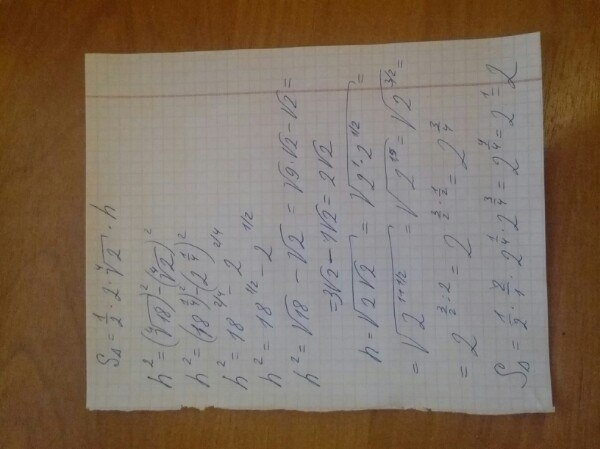 S△ = 1/2 · 2 · ⁴√2 · h
h² = (⁴√18)² - (⁴√2)²
h² = (18^{1/4})² - (2^{1/4})²
h² = 18^{2/4} - 2^{2/4}
h² = 18^{1/2} - 2^{1/2}
h² = √18 - √2 = √9·√2 - √2 =
= 3√2 - 1√2 = 2√2
h = √(2√2) = √(2¹·2^{1/2}) =
= √(2^{1+1/2}) = √(2^{1,5}) = √(2^{3/2}) =
= 2^{3/2 : 2} = 2^{3/2 · 1/2} = 2^{3/4}
S△ = 1/2 · 2/1 · 2^{1/4} · 2^{3/4} = 2^{4/4} = 2¹ = 2